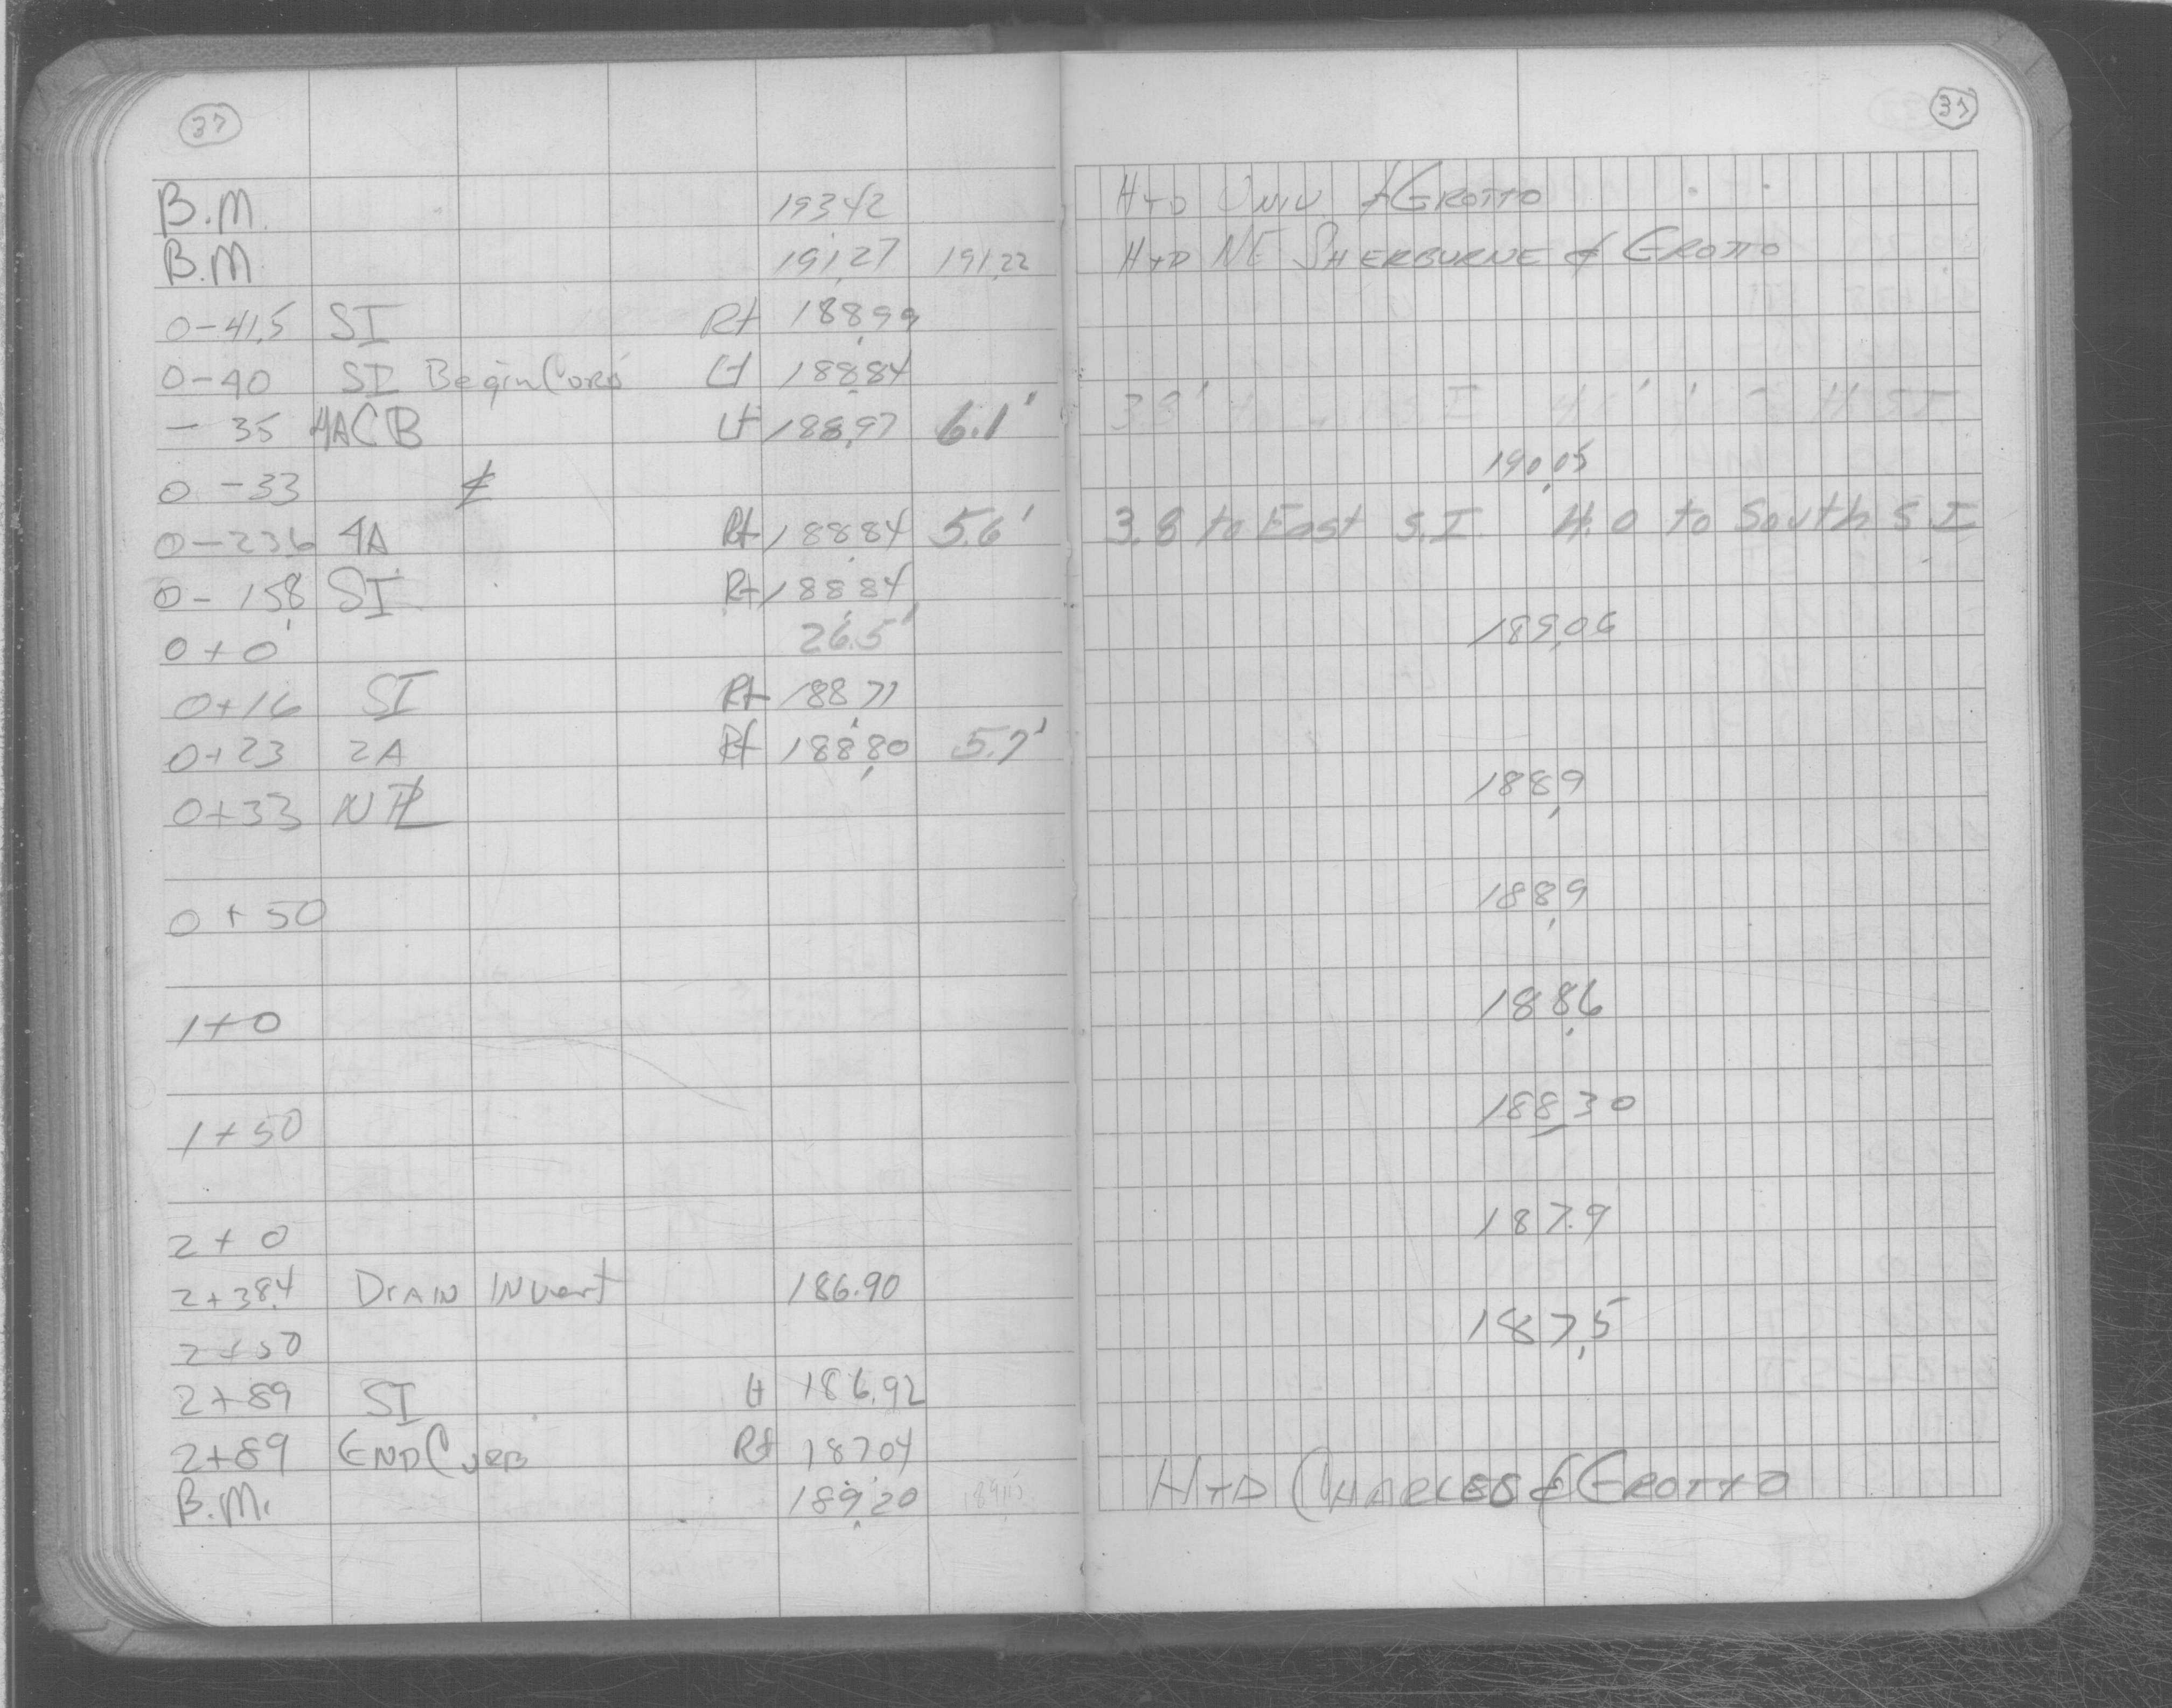 37
37
B.M. 193.42 HYD UNIV & GROTTO
B.M. 191.27 191.22 HYD NE SHERBURNE & GROTTO
0-41.5 SI Rt 188.99
0-40 SI Begin Curb Lt 188.84
- 35 4ACB Lt 188.97 6.1' 3.8'
0-33 ₵ 190.05
0-23.6 4A Rt 188.84 5.6' 3.8 to East S.I. 4.0 to South S I
0-15.8 SI Rt 188.84
0+0 26.5' 189.06
0+16 SI Rt 188.71
0+23 2A Rt 188.80 5.7'
0+33 NPL 188.9
0+50 188.9
1+0 188.6
1+50 188.30
2+0 187.9
2+38.4 DRAIN INVert 186.90
2+50 187.5
2+89 SI Lt 186.92
2+89 END CURB Rt 187.04
B.M. 189.20 HYD CHARLES & GROTTO